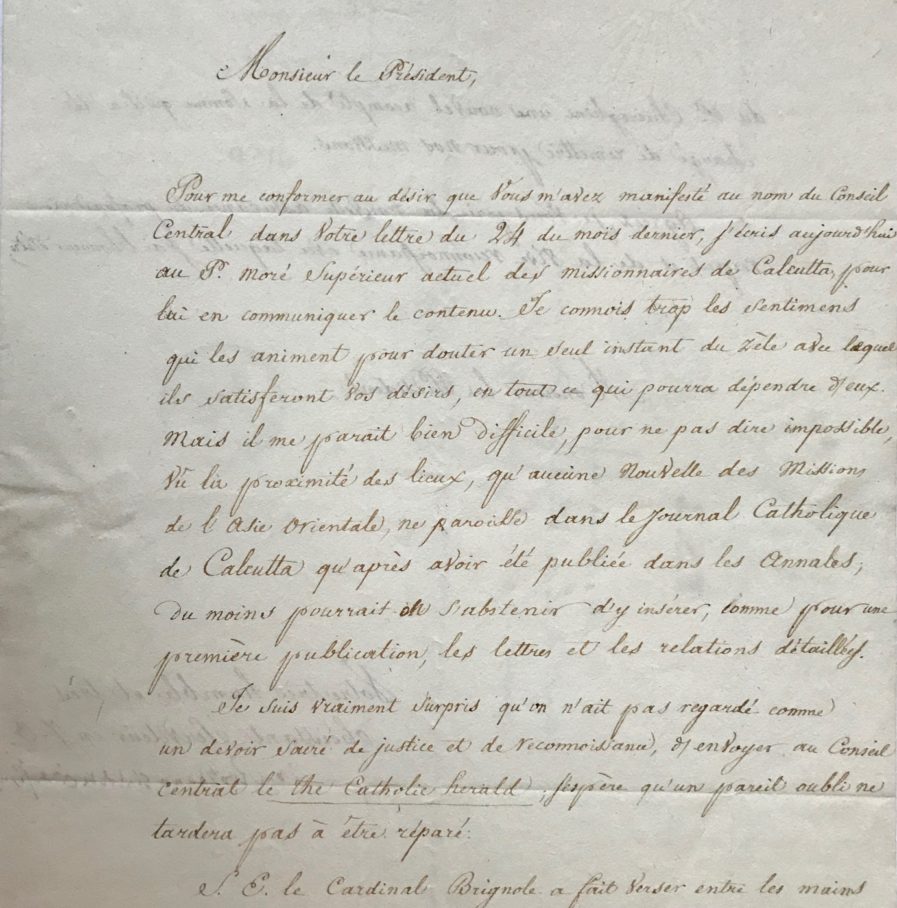 Monsieur le Président,
Pour me conformer au désir que Vous m'avez manifesté au nom du Conseil
Central dans Votre lettre du 24 du mois dernier, j'écris aujourd'hui
au P. Moré Supérieur actuel des missionnaires de Calcutta, pour
lui en communiquer le contenu. Je connois trop les sentimens
qui les animent pour douter un seul instant du zèle avec lequel
ils satisferont vos désirs, en tout ce qui pourra dépendre d'eux.
Mais il me parait bien difficile, pour ne pas dire impossible,
Vû la proximité des lieux, qu'aucune Nouvelle des Missions
de l'Asie Orientale, ne paroisse dans le Journal Catholique
de Calcutta qu'après avoir été publiée dans les Annales;
du moins pourrait on s'abstenir d'y insérer, comme pour une
première publication, les lettres et les relations détaillées.
Je suis vraiment surpris qu'on n'ait pas regardé comme
un devoir sacré de justice et de reconnoissance, d'envoyer au Conseil
central le the Catholic herald; j'espère qu'un pareil oubli ne
tardera pas à être réparé.
S. E. le Cardinal Brignole a fait verser entre les mains